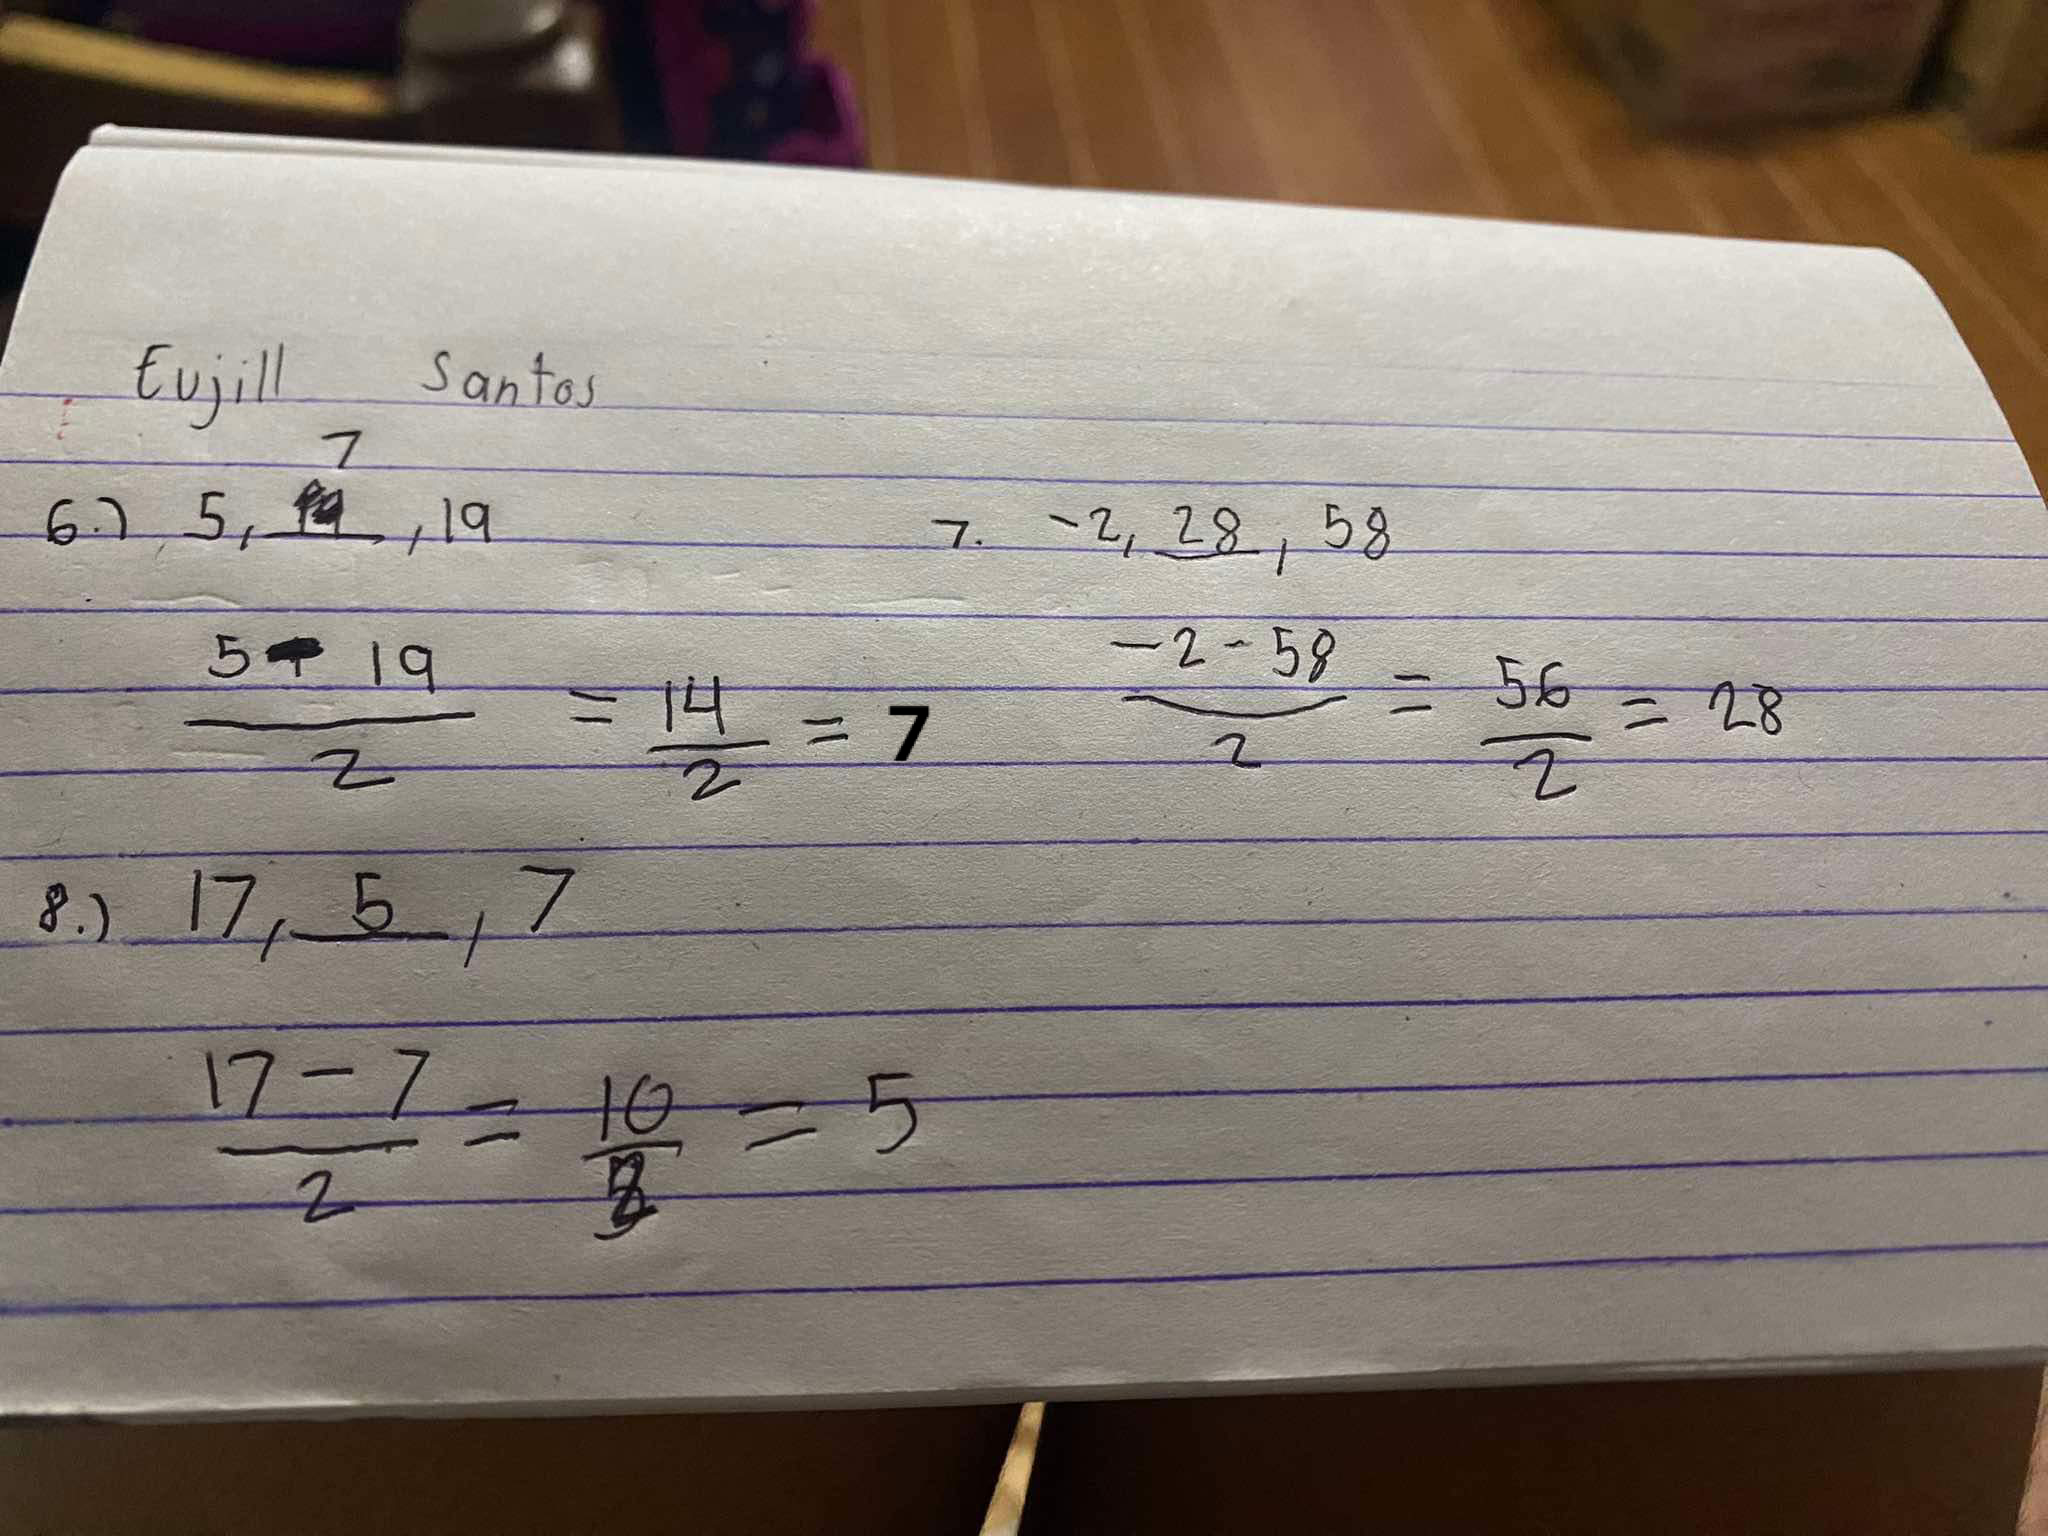 Eujill Santos
7
6.) 5, ___, 19
7. -2, 28, 58
5 - 19 / 2 = 14 / 2 = 7
-2 - 58 / 2 = 56 / 2 = 28
8.) 17, 5, 7
17 - 7 / 2 = 10 / 2 = 5